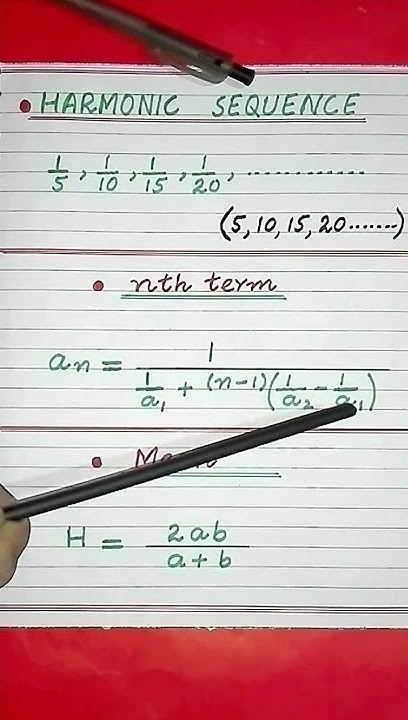 • HARMONIC SEQUENCE
1/5, 1/10, 1/15, 1/20, ..............
(5, 10, 15, 20.......)
• nth term
an = 1 / (1/a₁ + (n-1)(1/a₂ - 1/a₁))
•
H = 2ab / a+b